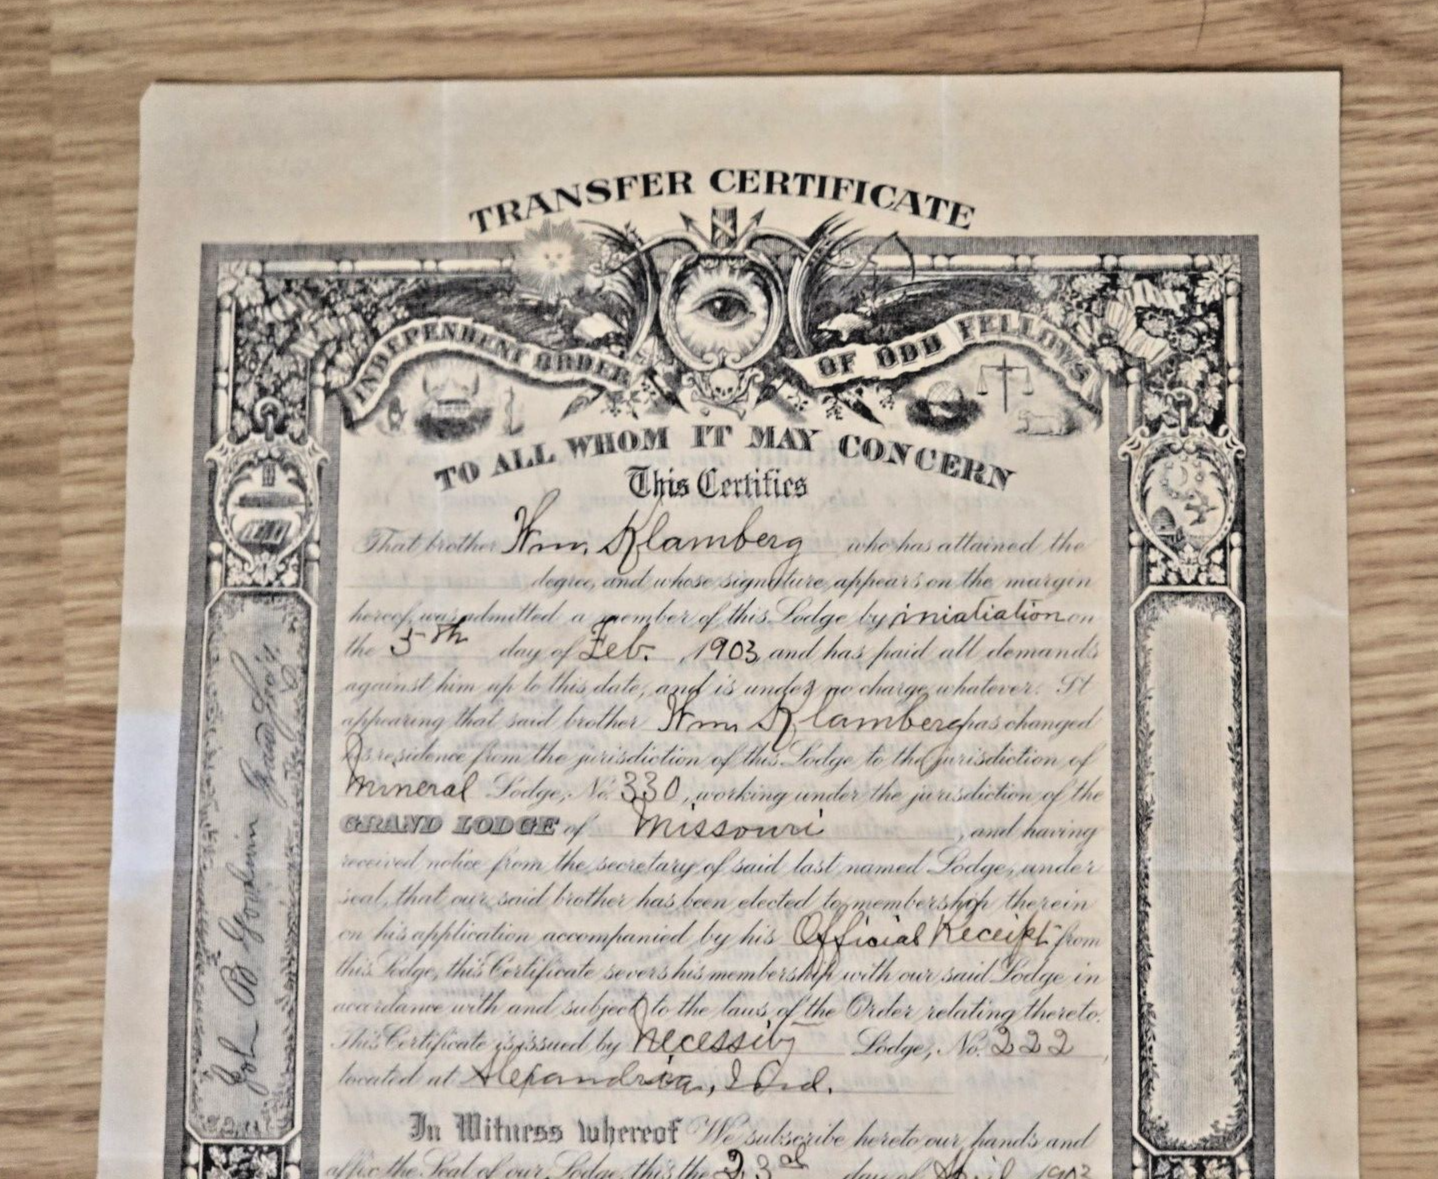 TRANSFER CERTIFICATE
INDEPENDENT ORDER OF ODD FELLOWS
TO ALL WHOM IT MAY CONCERN
This Certifies
That brother Wm. Klamberg who has attained the
degree, and whose signature appears on the margin
hereof, was admitted a member of this Lodge by iniatiation on
the 5th day of Feb. , 1903 and has paid all demands
against him up to this date, and is under no charge whatever. It
appearing that said brother Wm Klamberg has changed
his residence from the jurisdiction of this Lodge to the jurisdiction of
Mineral Lodge, No. 330, working under the jurisdiction of the
GRAND LODGE of Missouri , and having
received notice from the secretary of said last named Lodge, under
seal, that our said brother has been elected to membership therein
on his application accompanied by his Official Receipt from
this Lodge, this Certificate severs his membership with our said Lodge in
accordance with and subject to the laws of the Order relating thereto.
This Certificate is issued by Necessity Lodge, No. 222 ,
located at Alexandria, Ind.
In Witness whereof We subscribe hereto our hands and
affix the Seal of our Lodge, this the 23rd day of April 1903
John B Goodwin Grand Sec'y.